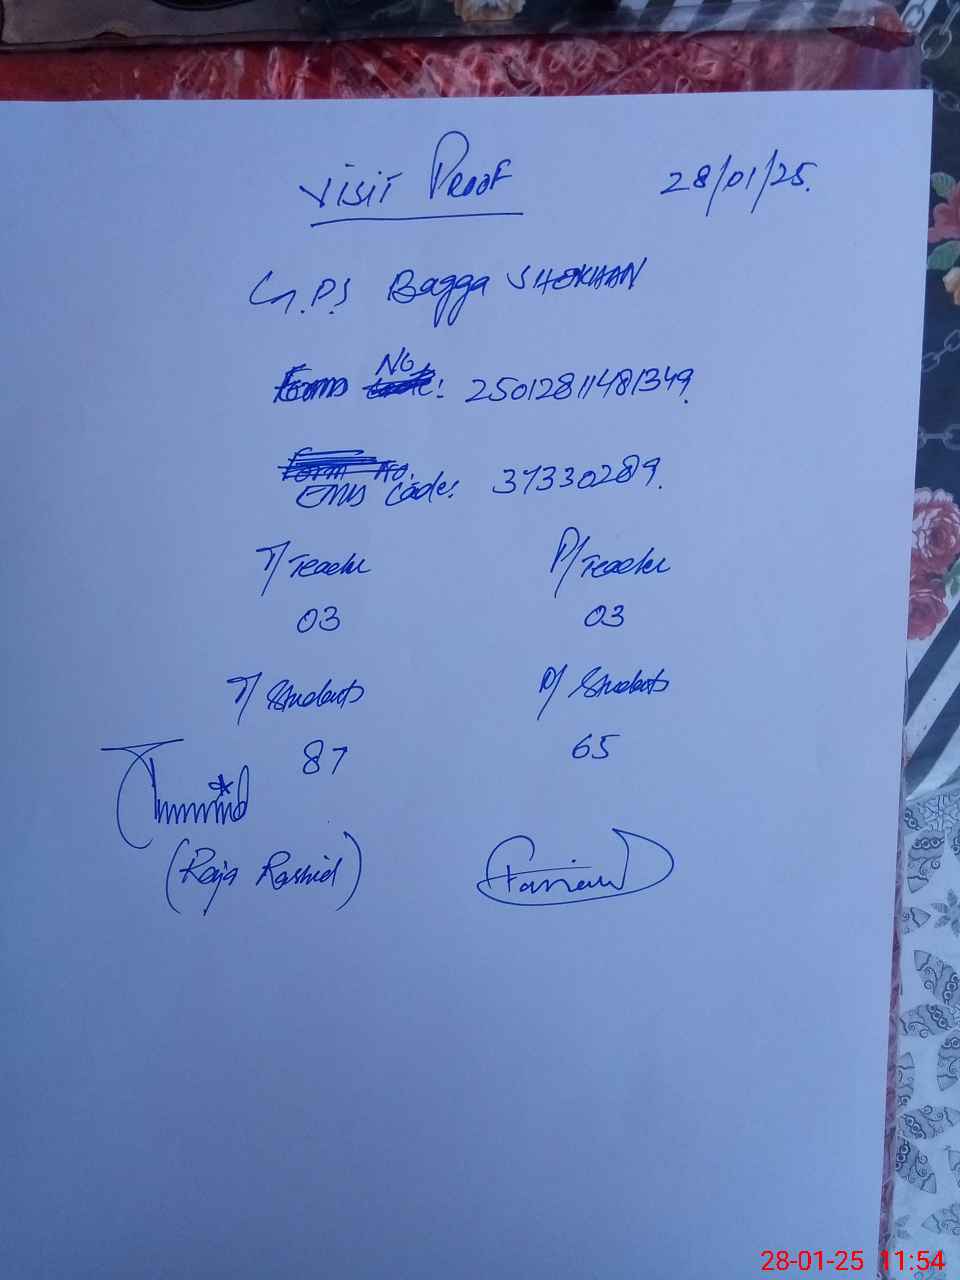 Visit Proof 28/01/25.
G.P.S Bagga SHEKHAN
Form No: 25012811481349.
EMIS Code: 37330289.
T/Teacher P/Teacher
03 03
T/Students P/Students
87 65
(Raja Rashid)
28-01-25 11:54